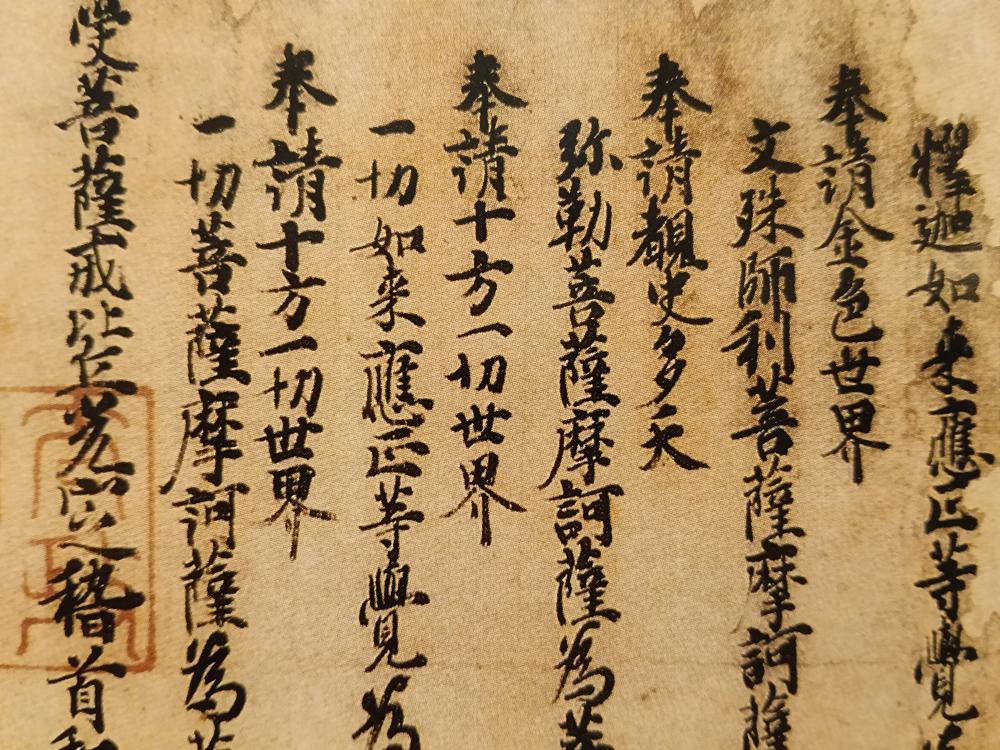 釋迦如来應正等覺
奉請金色世界
文殊師利菩薩摩訶薩
奉請覩史多天
弥勒菩薩摩訶薩為菩
奉請十方一切世界
一切如来應正等覺為
奉請十方一切世界
一切菩薩摩訶薩為菩
受菩薩戒比丘光定稽首和